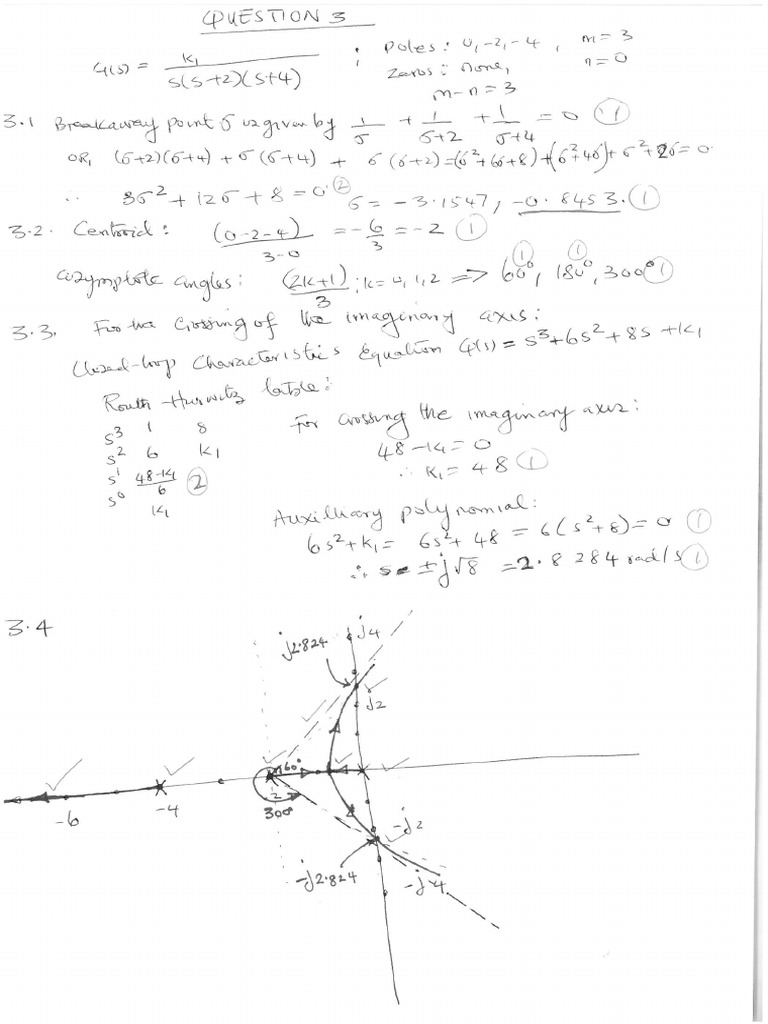 QUESTION 3
G(s) = K1 / s(s+2)(s+4) ; Poles: 0, -2, -4, m = 3
Zeros: none, n = 0
m-n = 3
3.1 Breakaway point σ is given by 1/σ + 1/σ+2 + 1/σ+4 = 0 (1)
OR, (σ+2)(σ+4) + σ(σ+4) + σ(σ+2) = (σ²+6σ+8)+(σ²+4σ)+σ²+2σ = 0
∴ 3σ² + 12σ + 8 = 0 (2) σ = -3.1547, -0.8453. (1)
3.2. Centroid: (0-2-4)/3-0 = -6/3 = -2 (1)
asymptote angles: (2k+1)/3 ; k = 0, 1, 2 => 60° (1), 180° (1), 300° (1)
3.3. For the Crossing of the imaginary axis:
Closed-loop Characteristics Equation φ(s) = s³+6s²+8s+K1
Routh-Hurwitz table:
s³ 1 8
s² 6 K1
s¹ 48-K1/6 (2)
s⁰ K1
For crossing the imaginary axis:
48-K1 = 0
∴ K1 = 48 (1)
Auxilliary polynomial:
6s²+K1 = 6s²+48 = 6(s²+8) = 0 (1)
∴ s = ±j√8 = 2.8284 rad/s (1)
3.4
j4
j2.824
j2
60°
-6
-4
-2
300°
-j2
-j2.824
-j4